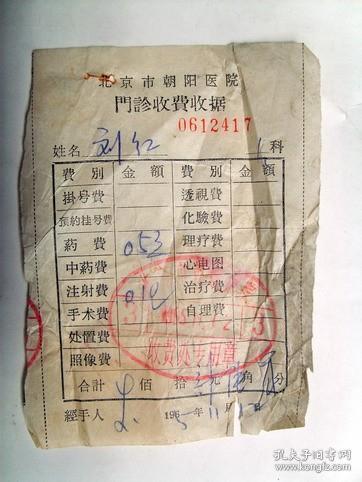 北京市朝阳医院
門診收費收据
0612417
姓名 刘红 科
費別 金額 費別 金額
掛号費 透視費
預約挂号費 化驗費
葯費 053 理疗費
中葯費 心电图
注射費 010 治疗費
手术費 自理費
处置費
照像費
收款处专用章
合計 佰 拾 元 角 分
經手人 1965年11月
孔夫子旧书网